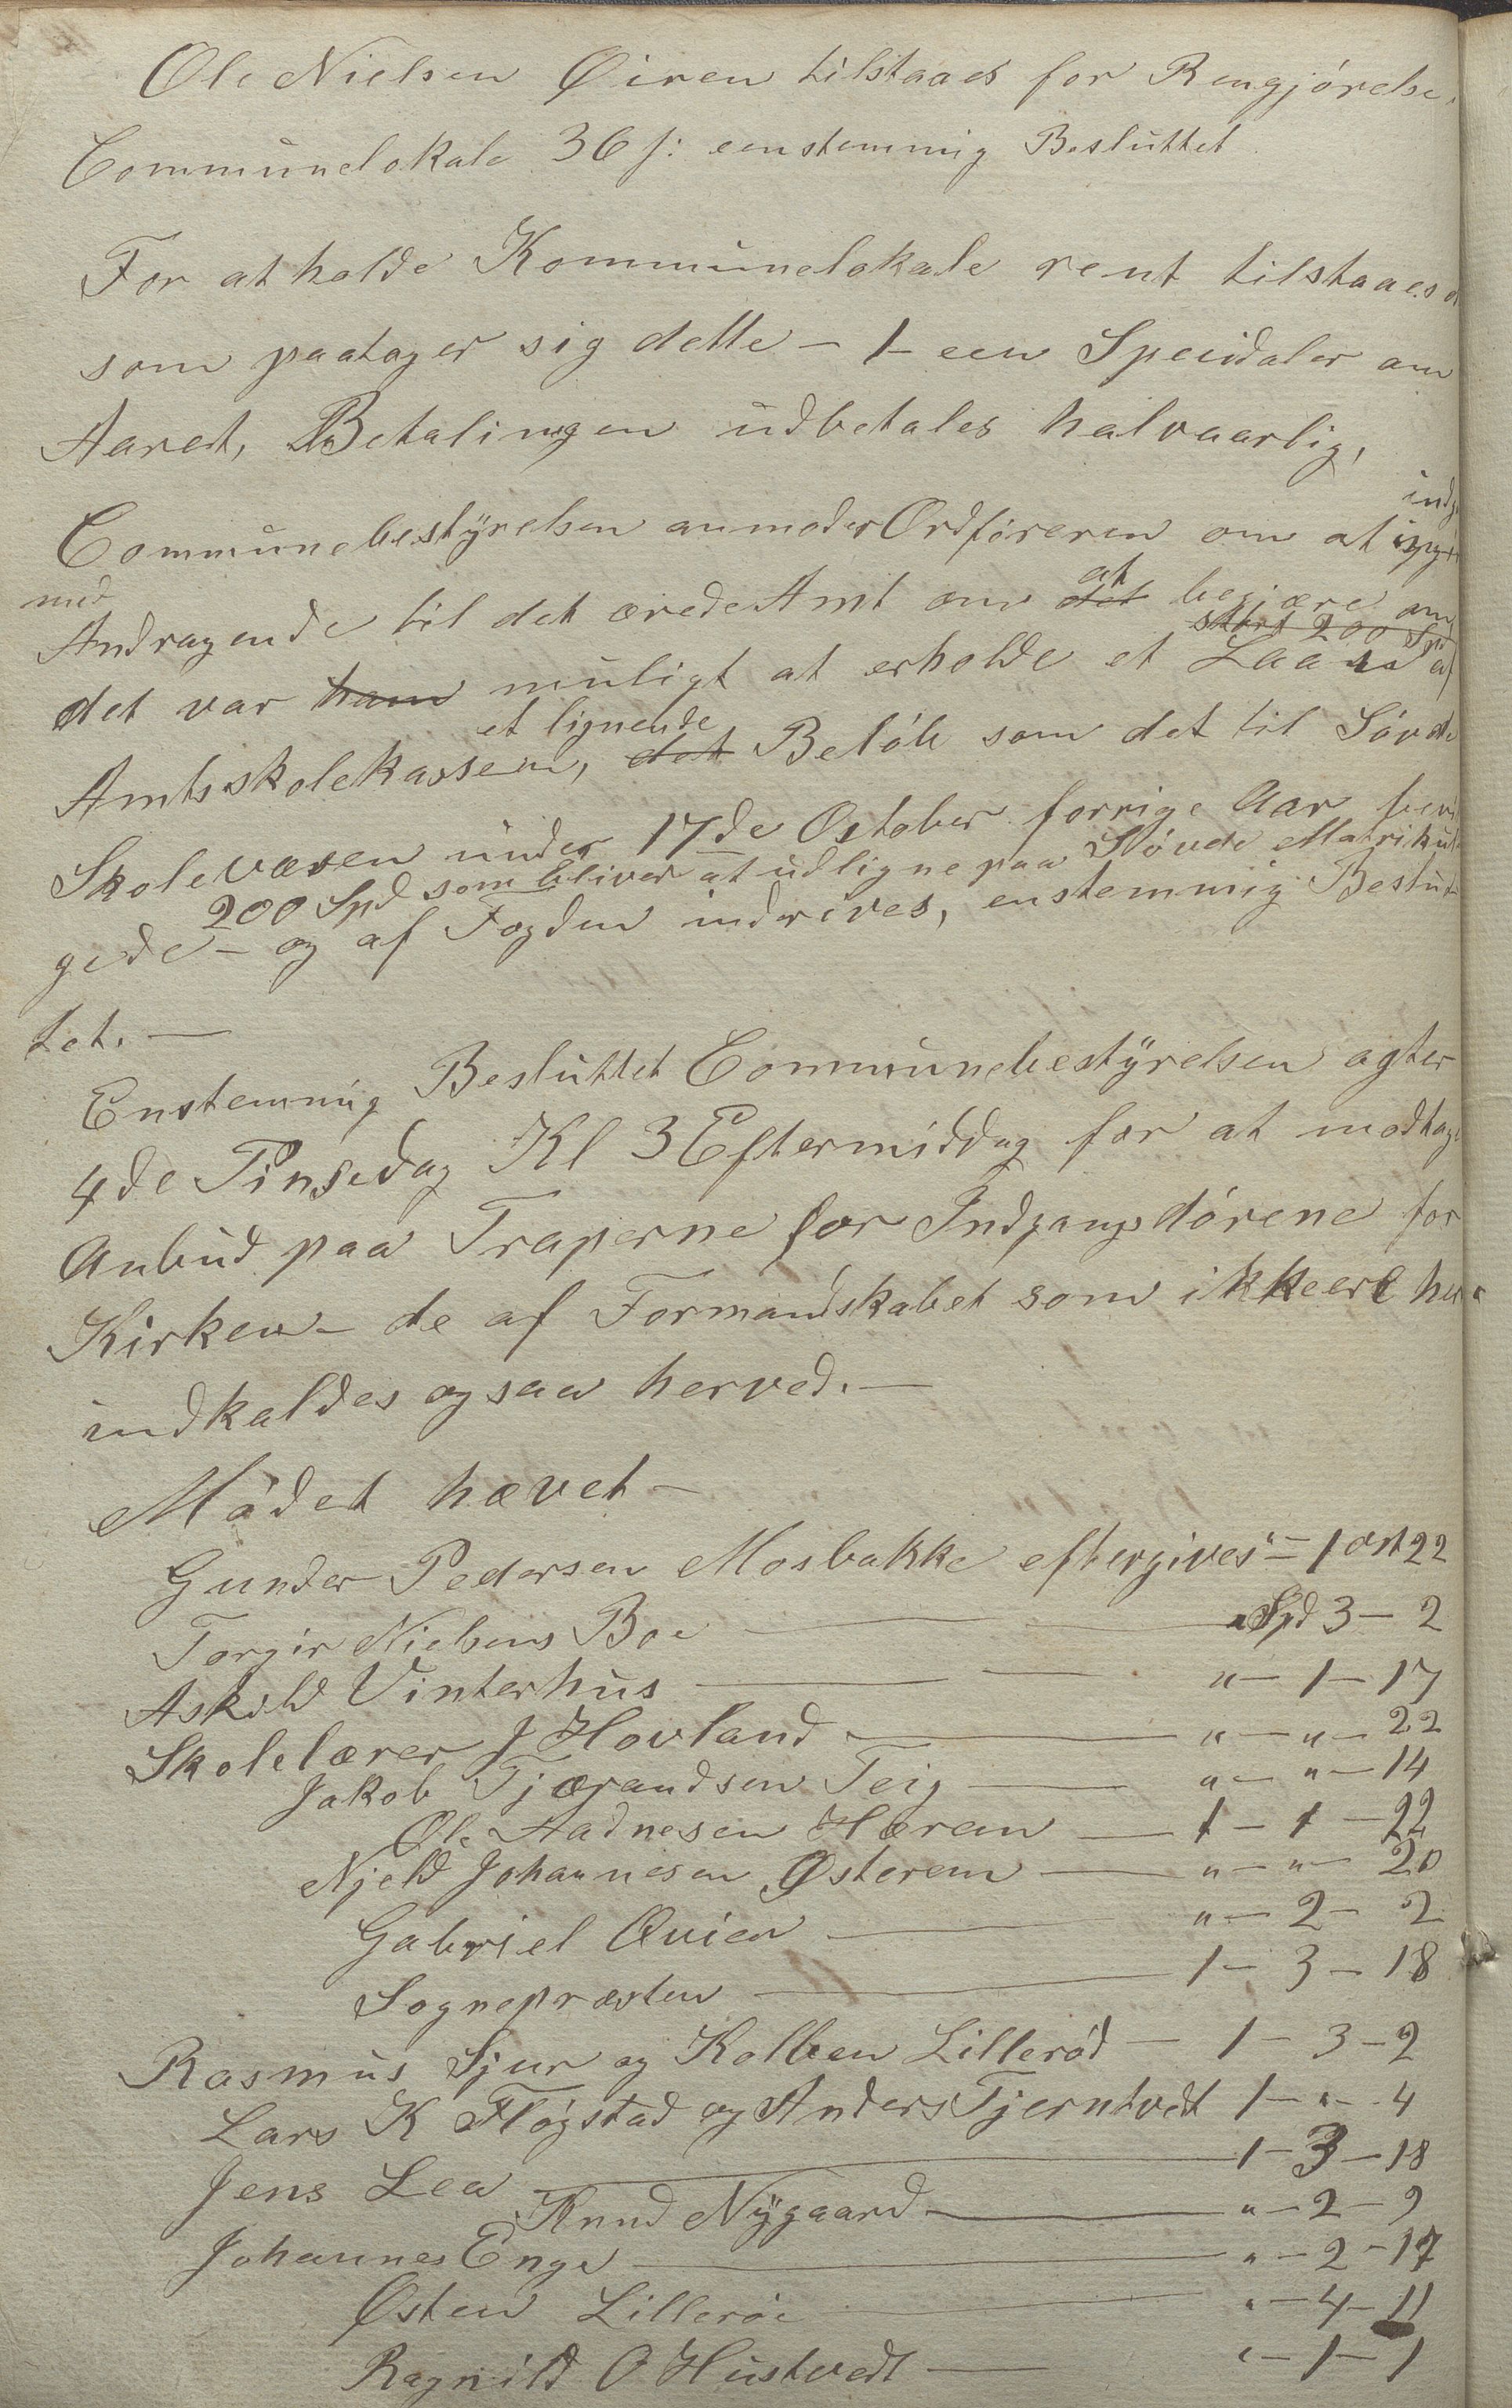 Ole Nielsen Øiren tilstaaes for Rengjørelse
Communelokale 36 s: eenstemmig Besluttet
For at holde Kommunelokale rent tilstaaes
som paatager sig dette – 1 – een Speciedaler om
Aaret, Betalingen udbetales halvaarlig,
Communebestyrelsen anmoder Ordføreren om at
med
Andragende til det ærede Amt om det at begjære om
stort 200 Spd
det var ham muligt at erholde et Laan af
et lignende
Amtsskolekassen, det Beløb som det til Søvde
Skolevæsen under 17de October forrige Aar bevil
200 Spd som bliver at udligne paa Søvde Matrikul
gede – og af Fogden inddrives, enstemmig Beslut
tet. –
Enstemmig Besluttet Communebestyrelsen agter
4de Pinsedag Kl 3 Eftermiddag for at modtage
Anbud paa Traperne for Indgangsdørene for
Kirken – de af Formandskabet som ikke ere her
indkaldes ogsaa herved. –
Mødet hævet –
Gunder Pedersen Mosbakke eftergives " – 1 ort 22
Torgir Nielsens Boe — Spd 3 – 2
Askild Vinterhus — " – 1 – 17
Skolelærer J Hovland — " – " – 22
Jakob Tjærandsen Teig — " – " – 14
Ole Aadnesen Hæren — 1 – 1 – 22
Njeld Johannesen Østerem — " – " – 20
Gabriel Qvien — " – 2 – 2
Sognepræsten — 1 – 3 – 18
Rasmus Sjur og Kolben Lillerød — 1 – 3 – 2
Lars K Fløgstad og Anders Tjerntvedt 1 – " – 4
Jens Lea — 1 – 3 – 18
Knud Nygaard — " – 2 – 9
Johannes Enge — " – 2 – 17
Østen Lillerøe — " – 4 – 11
Ragnild O Hustvedt — " – 1 – 1